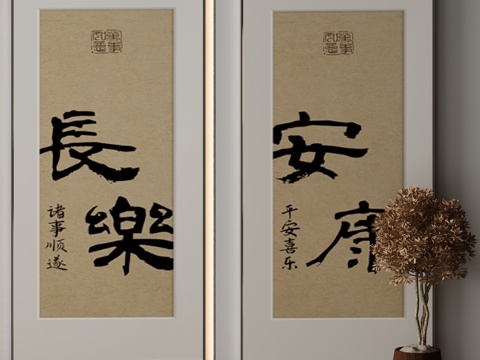 長樂
诸事顺遂
安康
平安喜乐